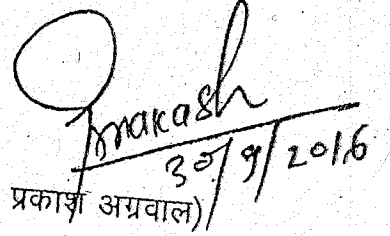 Prakash
30/9/2016
प्रकाश अग्रवाल)